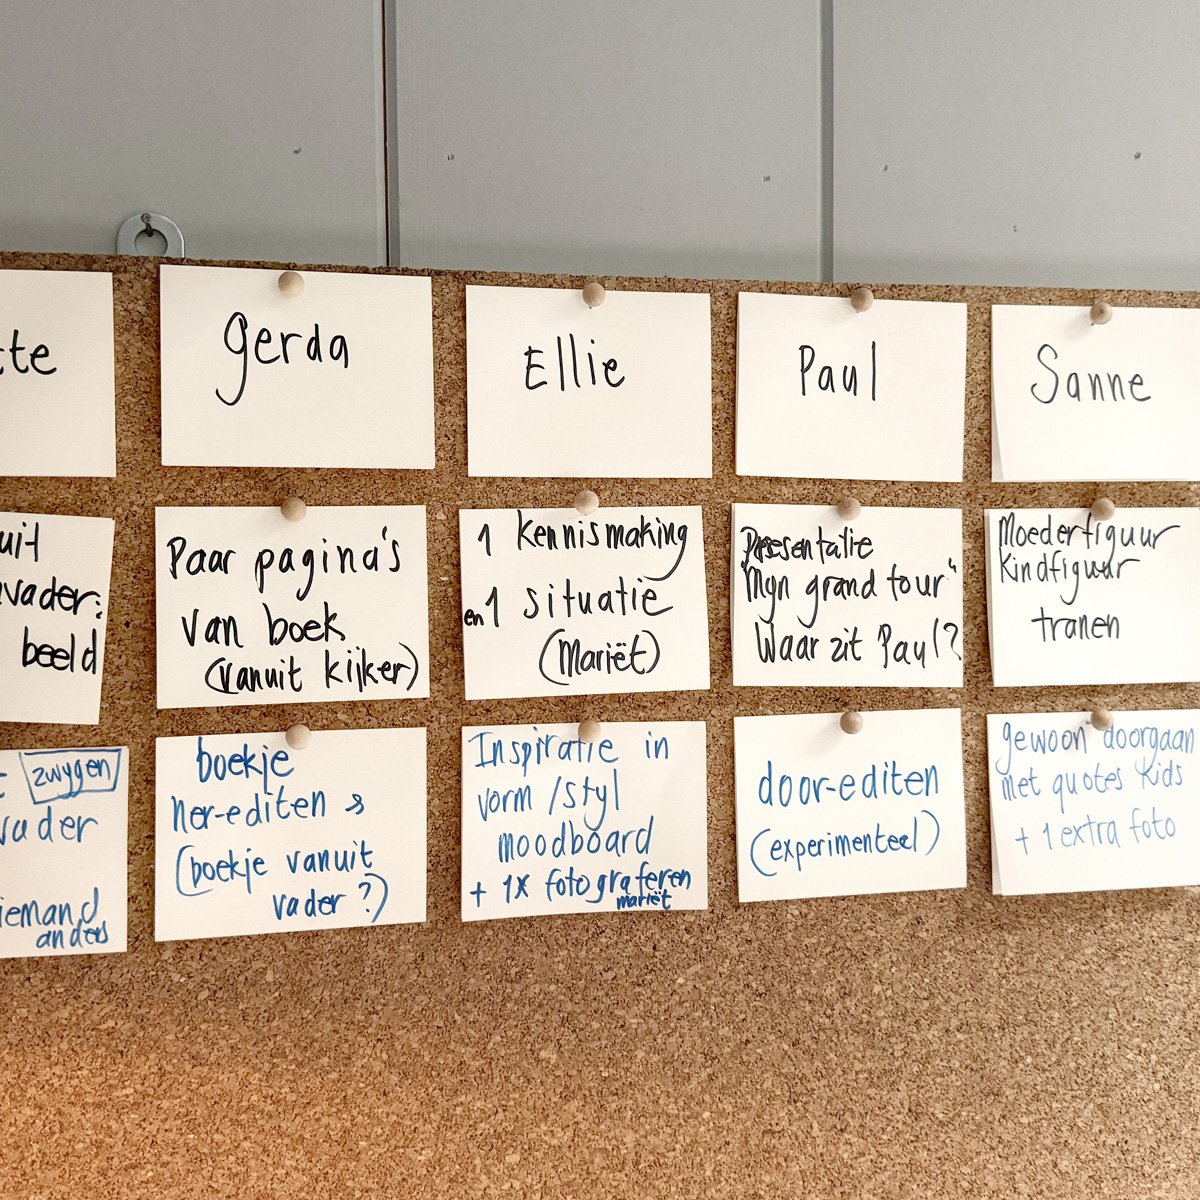 tte
gerda
Ellie
Paul
Sanne
uit
vader:
beeld
Paar pagina's
van boek
(vanuit kijker)
1 kennismaking
en 1 situatie
(Mariët)
Presentatie
"Mijn grand tour"
Waar zit Paul?
Moederfiguur
Kindfiguur
tranen
zwijgen
vader
iemand
anders
boekje
her-editen
(boekje vanuit
vader?)
Inspiratie in
vorm/styl
moodboard
+ 1x fotograferen
mariët
door-editen
(experimenteel)
gewoon doorgaan
met quotes kids
+ 1 extra foto